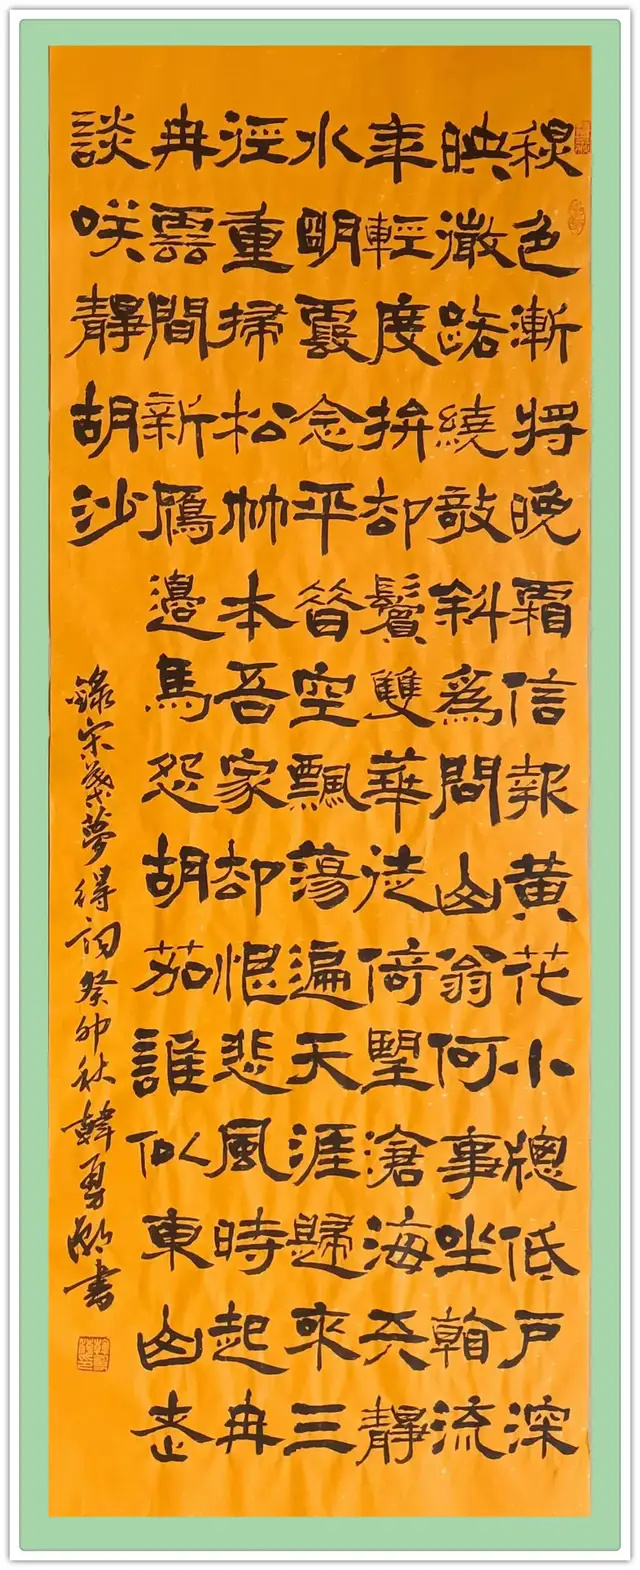 秋色漸將晚霜信報黃花小窗低戶深
映微路繞敧斜為問山翁何事坐看流
年輕度拚却鬢雙華徙倚望滄海天靜
水明霞念平昔空飄蕩遍天涯歸來三
徑重掃松竹本吾家却恨悲風時起冉
冉雲間新鴈邊馬怨胡笳誰似東山老
談咲靜胡沙
錄宋葉夢得詞癸卯秋韓勇書